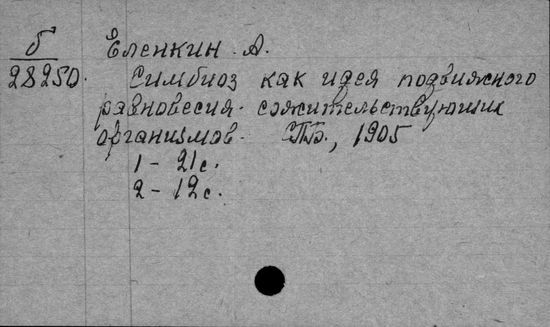 б
28250.
Еленкин А.
Симбиоз как идея подвижного
равновесия сожительствующих
организмов. СПБ., 1905
1 - 21 с.
2 - 12 с.